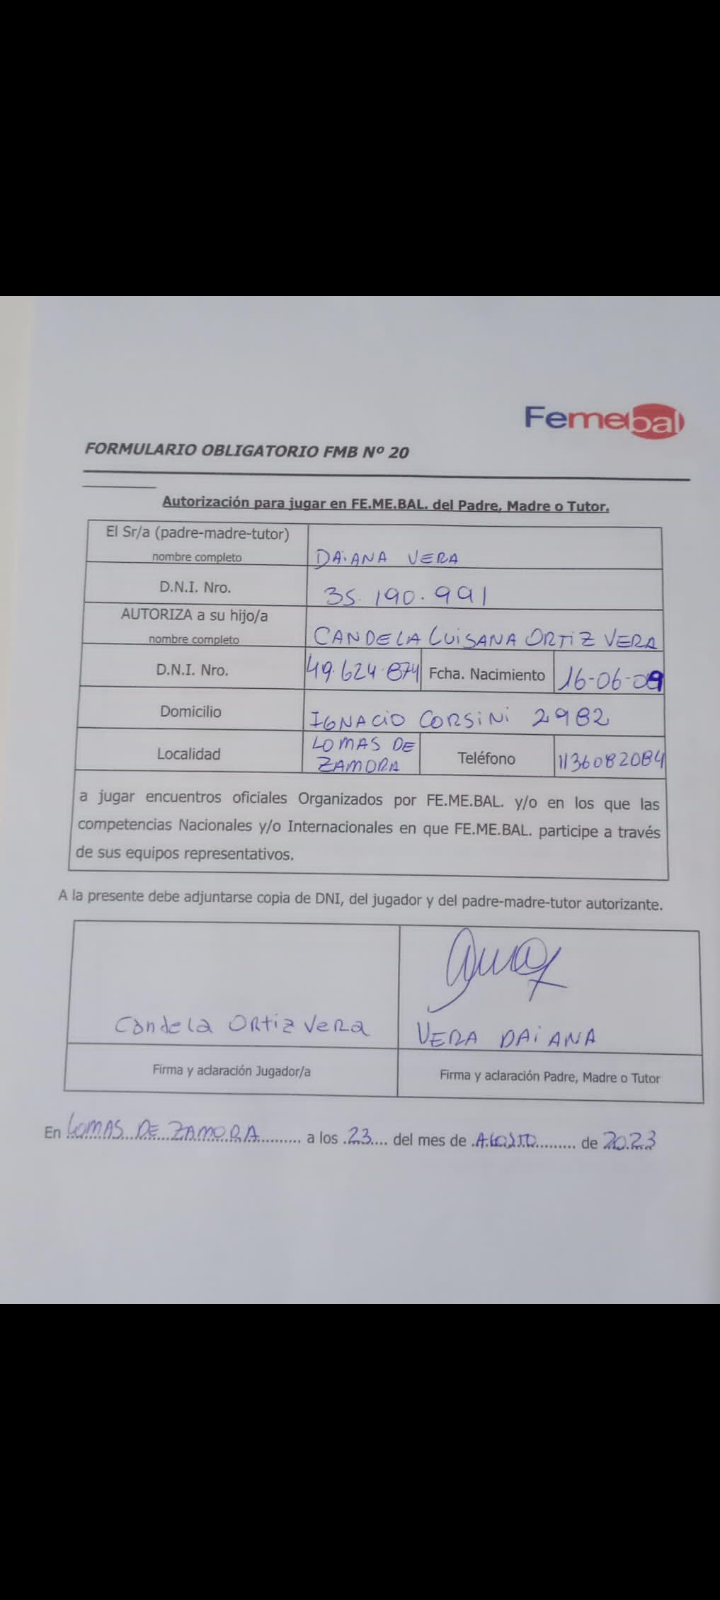 Femebal
FORMULARIO OBLIGATORIO FMB Nº 20
Autorización para jugar en FE.ME.BAL. del Padre, Madre o Tutor.
El Sr/a (padre-madre-tutor)
nombre completo
DAiANA VERA
D.N.I. Nro.
35.190.991
AUTORIZA a su hijo/a
nombre completo
CANDELA LUISANA ORTIZ VERA
D.N.I. Nro.
49.624.874
Fcha. Nacimiento
16-06-09
Domicilio
IGNACIO CORSiNi 2982
Localidad
LOMAS DE
ZAMORA
Teléfono
1136082084
a jugar encuentros oficiales Organizados por FE.ME.BAL. y/o en los que las
competencias Nacionales y/o Internacionales en que FE.ME.BAL. participe a través
de sus equipos representativos.
A la presente debe adjuntarse copia de DNI, del jugador y del padre-madre-tutor autorizante.
Candela ORtiz VeRa
VERA DAiANA
Firma y aclaración Jugador/a
Firma y aclaración Padre, Madre o Tutor
En LOMAS DE ZAMORA a los 23 del mes de AGOSTO de 2023